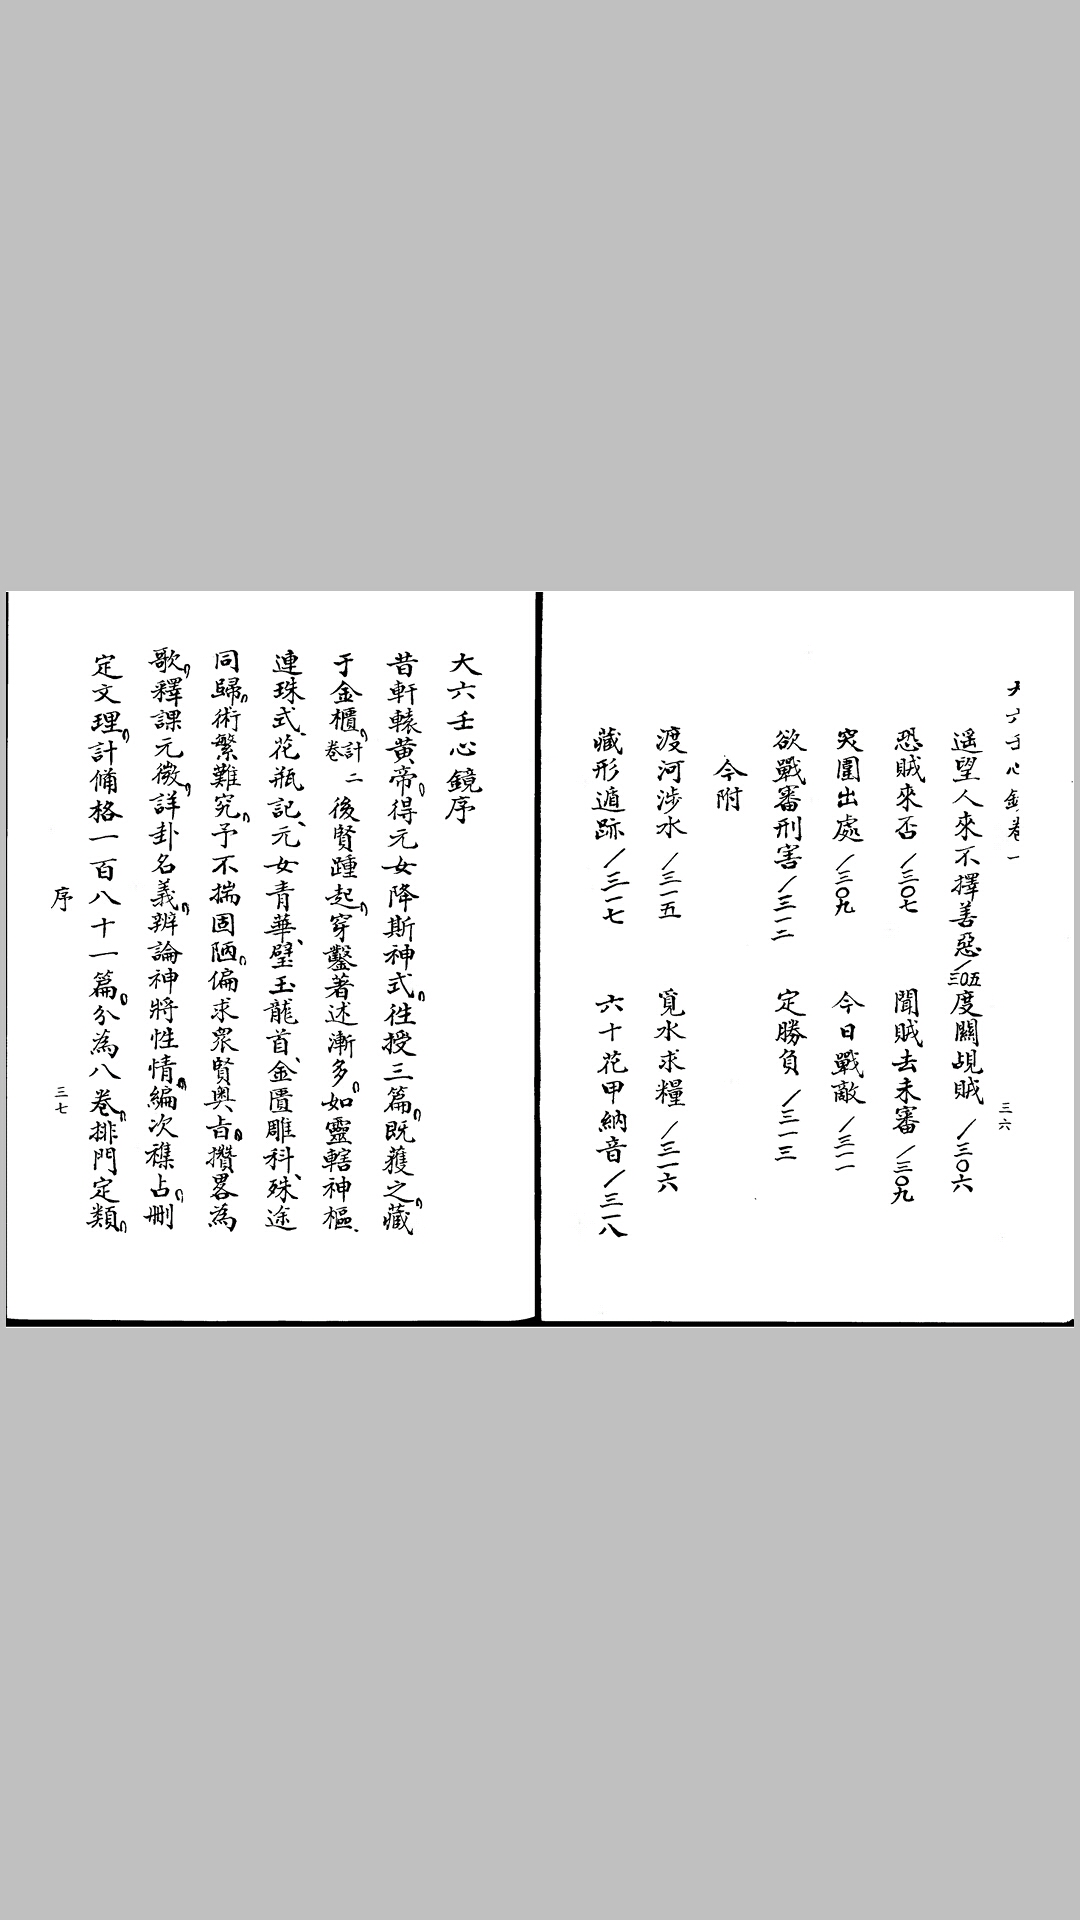 大六壬心鏡卷一
遥望人來不擇善惡／三〇五 度關覘賊／三〇六
恐賊來否／三〇七 聞賊去未審／三〇九
突圍出處／三〇九 今日戰敵／三一一
欲戰審刑害／三一二 定勝負／三一三
今附
渡河涉水／三一五 覓水求糧／三一六
藏形遁跡／三一七 六十花甲納音／三一八
三六
大六壬心鏡序
昔軒轅黃帝，得元女降斯神式，往授三篇，既獲之，藏
于金櫃，計二卷 後賢踵起，穿鑿著述漸多。如靈轄神樞、
連珠式、花瓶記、元女青華、璧玉龍首、金匱雕科、殊途
同歸，術繁難究，予不揣固陋，偏求衆賢奧旨，攢畧為
歌，釋課元微，詳卦名義，辨論神將性情，編次襍占，刪
定文理，計俻格一百八十一篇，分為八卷，排門定類，
序
三七